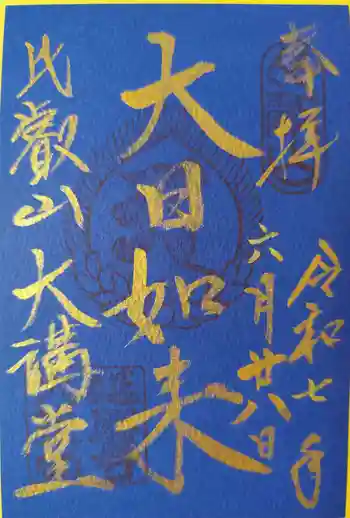 奉拝
令和七年
六月廿八日
大日如来
比叡山大講堂